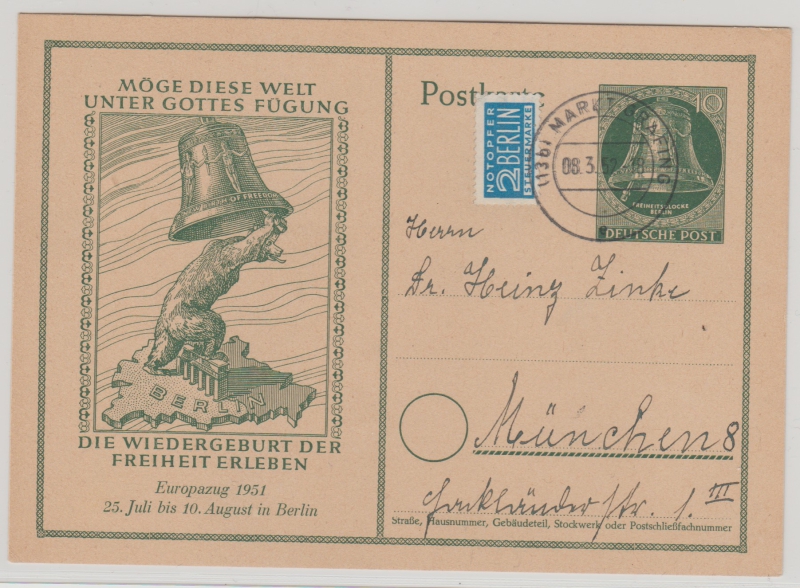 MÖGE DIESE WELT
UNTER GOTTES FÜGUNG
BIRTH OF FREEDOM
BERLIN
DIE WIEDERGEBURT DER
FREIHEIT ERLEBEN
Europazug 1951
25. Juli bis 10. August in Berlin
Postkarte
NOTOPFER
2 BERLIN
STEUERMARKE
(13b) MARKT GRAFING
08.3.52.18
10
FREIHEITSGLOCKE
BERLIN
DEUTSCHE POST
Herrn
Dr. Heinz Zinke
München 8
Hackländerstr. 1. III
Straße, Hausnummer, Gebäudeteil, Stockwerk oder Postschließfachnummer